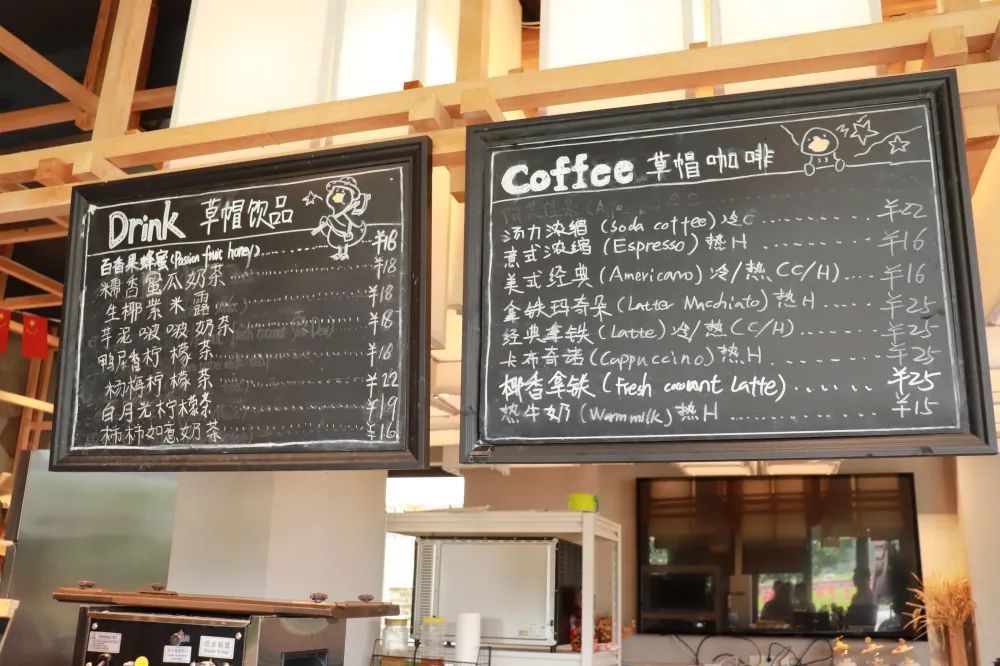 Drink 草帽饮品
百香果蜂蜜(Passion fruit honey)............¥16
糯香蜜瓜奶茶............¥18
生椰紫米露............¥18
芋泥啵啵奶茶............¥18
鸭屎香柠檬茶............¥18
杨梅柠檬茶............¥22
白月光柠檬茶............¥19
柿柿如意奶茶............¥16
Coffee 草帽咖啡
汤力浓缩(soda coffee)冷C ¥22
意式浓缩(Espresso)热H............¥16
美式经典(Americano)冷/热(C/H)......¥16
拿铁玛奇朵(Latter Macchiato)热H......¥25
经典拿铁(Latte)冷/热(C/H)............¥25
卡布奇诺(Cappuccino)热H............¥25
椰香拿铁(Fresh coconut Latte)......¥25
热牛奶(Warm milk)热H............¥15
进水装置